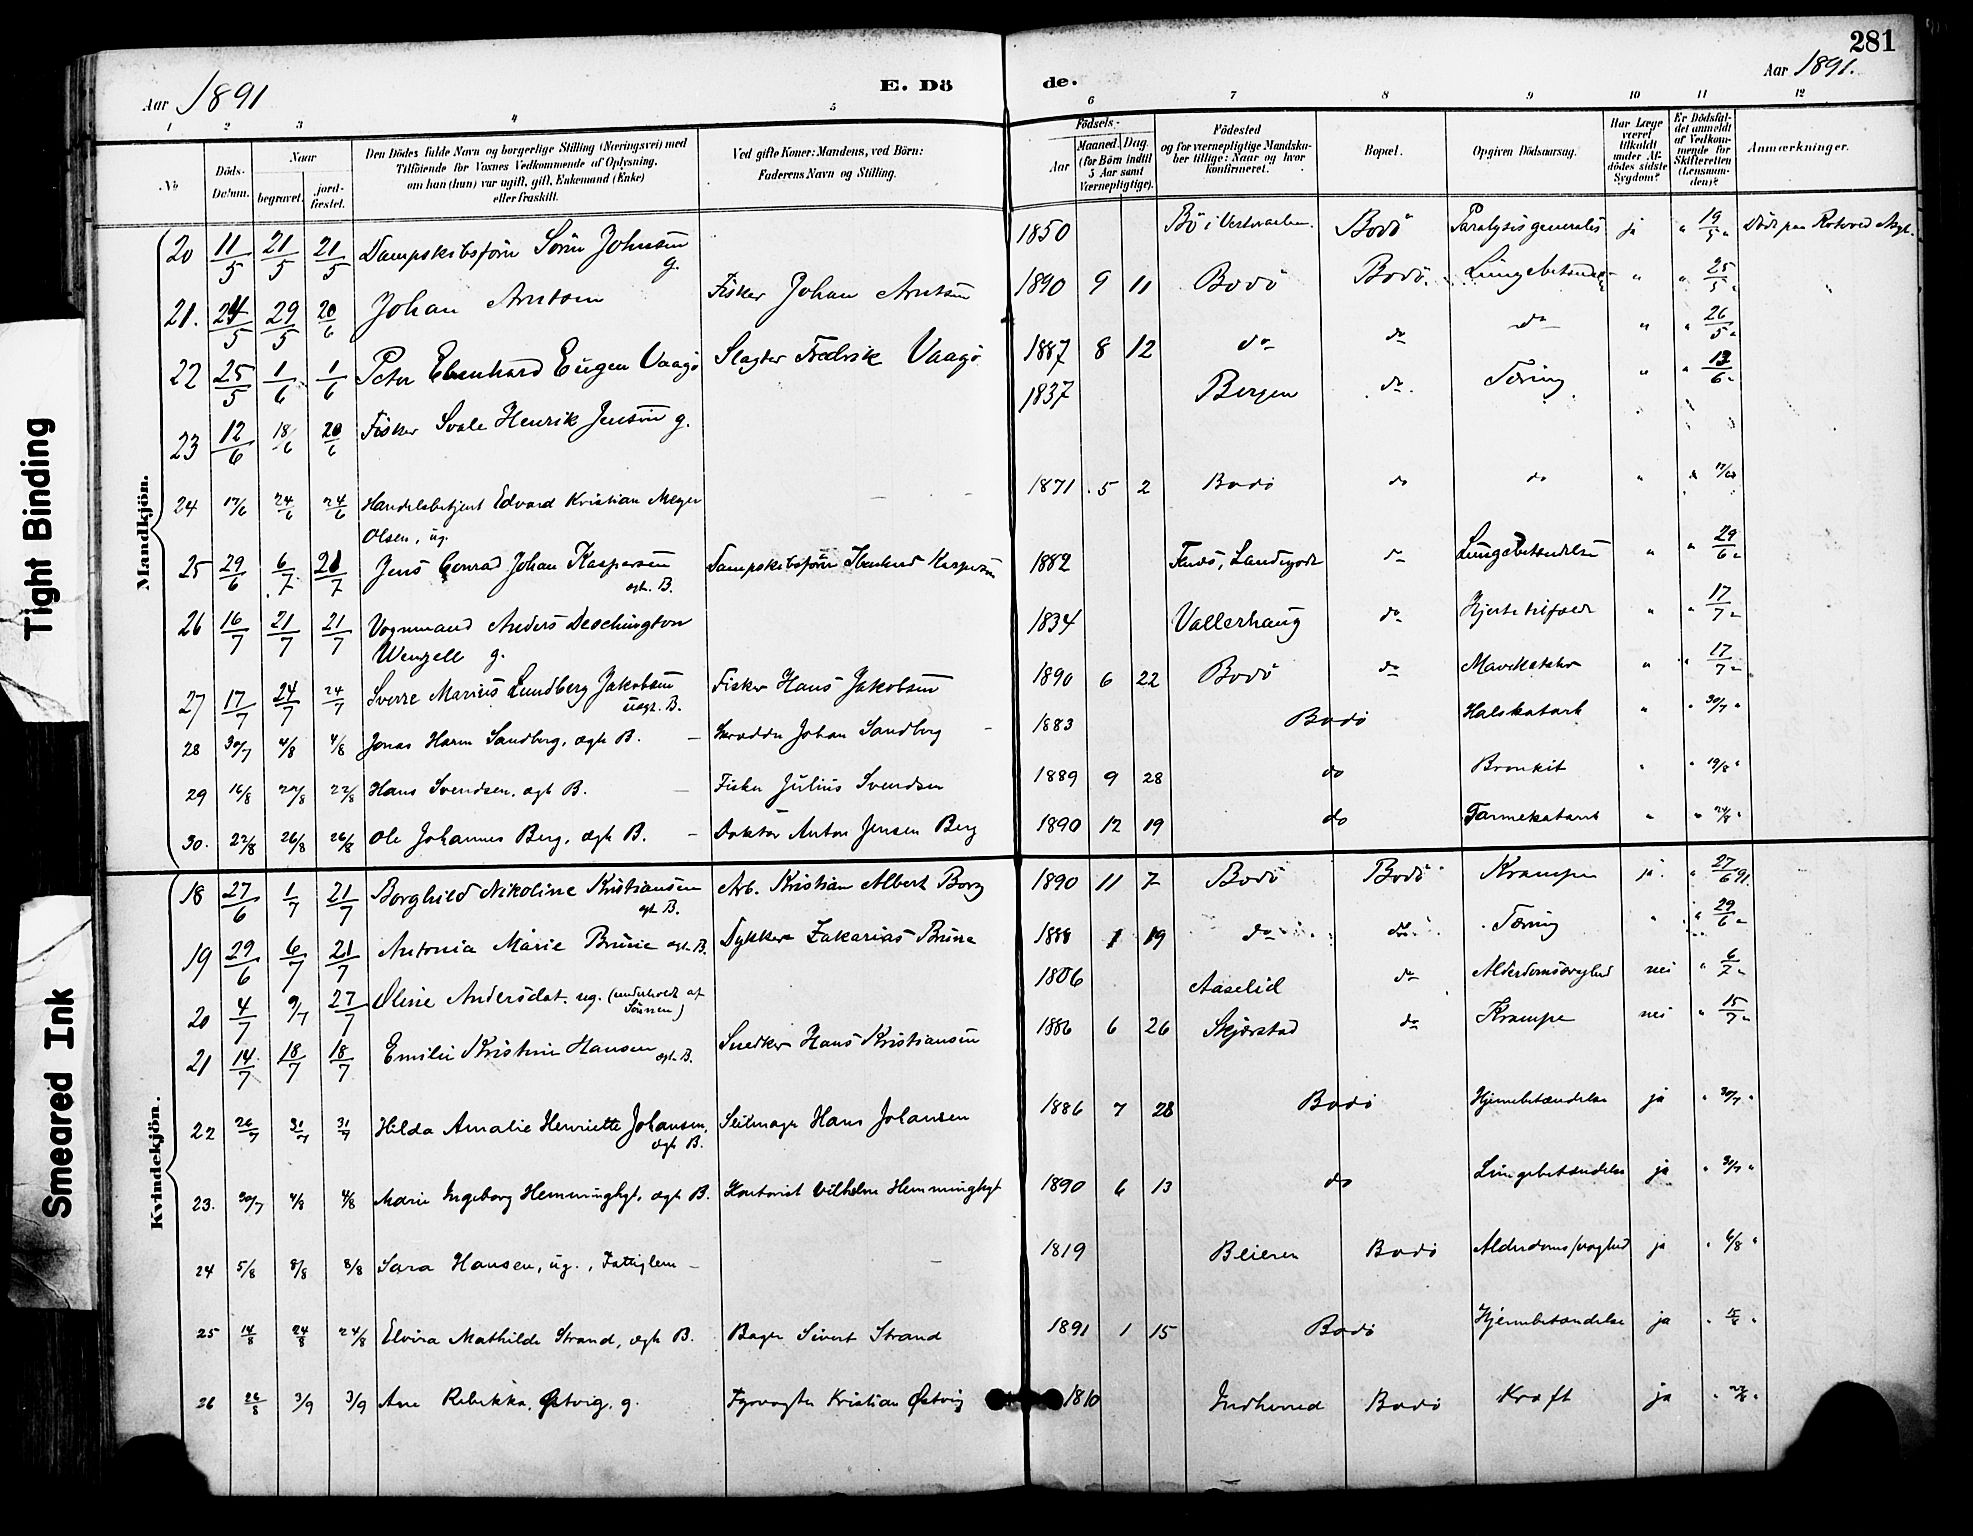 281
Aar 1891
E. Dö
de.
Aar 1891.
1 2 3 4 5 6 7 8 9 10 11 12
No
Döds-Datum.
Naar
begravet.
jord-fæstet.
Den Dödes fulde Navn og borgerlige Stilling (Næringsvei) med
Tilföiende for Voxnes Vedkommende af Oplysning,
om han (hun) var ugift, gift, Enkemand (Enke)
eller fraskilt.
Ved gifte Koner: Mandens, ved Börn:
Faderens Navn og Stilling.
Födsels-
Aar
Maaned. Dag.
(for Börn indtil
5 Aar samt
Værnepligtige).
Födested
og for værnepligtige Mandska-
ber tillige: Naar og hvor
konfirmeret.
Bopæl.
Opgiven Dödsaarsag.
Har Læge
været
tilkaldt
under Af-
dödes sidste
Sygdom?
Er Dödsfal-
det anmeldt
af Vedkom-
mende for
Skifteretten
(Lensman-
den)?
Anmærkninger.
Mandkjön.
20 11/5 21/5 21/5 Dampskibsförer Sörin Johnsen g. 1850 Bö i Vesteraalen Bodö Paralysis generalis ja " 19/5 " Död paa Rotvold Asyl.
21. 24/5 29/5 20/6 Johan Arntsen Fisker Johan Arntsen 1890 9 11 Bodö Bodö Lungebetændelse " " 25/5 "
22 25/5 1/6 1/6 Peter Edvnhard Eugen Vaagö Slagter Fredrik Vaagö 1887 8 12 do do do " " 26/5 "
23 12/6 18/6 20/6 Fisker Svale Henrik Jensen g. 1837 Bergen do Tæring " " 13/6 "
24 17/6 24/6 24/6 Handelsbetjent Edvard Kristian Meyer
Olsen, ug. 1871 5 2 Bodö do do " " 17/6 "
25 29/6 6/7 21/7 Jens Conrad Johan Kaspersen ægt. B. Dampskibsförer Kaspersen 1882 Fenes, Landegode do Lungebetændelse " " 29/6 "
26 16/7 21/7 21/7 Vognmand Anders Deschington
Wenzell g. 1834 Vallerhaug do Hjertetilfælde " " 17/7 "
27 17/7 24/7 24/7 Sverre Marius Lundberg Jakobsen uægt. B. Fisker Hans Jakobsen 1890 6 22 Bodö do Mavekatarr " " 17/7 "
28 30/7 4/8 4/8 Jonas Harm Sandberg, ægte B. – Skrædder Johan Sandberg – 1883 Bodö Halskatarh " " 30/7 "
29 16/8 22/8 22/8 Hans Svendsen, ægt B. – Fisker Julius Svendsen 1889 9 28 do Bronkit " " 19/8 "
30. 22/8 26/8 26/8 Ole Johannes Berg, ægte B. – Doktor Anton Jensen Berg 1890 12 19 do Tarmekatarh " " 24/8 "
Kvindekjön.
18 27/6 1/7 21/7 Borghild Nikoline Kristiansen ægt. B. Arb. Kristian Albert Borg 1890 11 7 Bodö Bodö Krampe ja " 27/6 91.
19 29/6 6/7 21/7 Antonia Marie Bruse ægt. B. Dykker Zakarias Bruse 1888 1 19 do do Tæring " " 29/6 "
20 4/7 9/7 27/7 Oline Andersdat. ug. (underholdt af
Sönnen) 1806 Aaselid do Alderdomssvaghed nei " 6/7 "
21 14/7 18/7 18/7 Emilie Kristine Hansen ægt. B. Snedker Hans Kristiansen 1886 6 26 Skjerstad do Krampe nei " 15/7 "
22 26/7 31/7 31/7 Hilda Amalie Henriette Johansen, ægte B. Seilmager Hans Johansen 1886 7 28 Bodö Hjernebetændelse ja " 30/7 "
23. 30/7 4/8 4/8 Marie Ingeborg Hemminghyt, ægte B. Kontorist Vilhelm Hemminghyt 1890 6 13 do Lungebetændelse ja " 31/7 "
24 5/8 8/8 8/8 Sara Hansen, ug., Fattiglem – – 1819 Beieren Bodö Alderdomssvaghed ja " 6/8 "
25 14/8 24/8 24/8 Elvira Mathilde Strand, ægte B. Bager Sivert Strand 1891 1 15 Bodö Hjernebetændelse ja
26 26/8 3/9 3/9 Ane Rebekka Østvig, g. Fyrvogter Kristian Østvig 1810 Indherred Bodö Kræft ja
Tight Binding
Smeared Ink